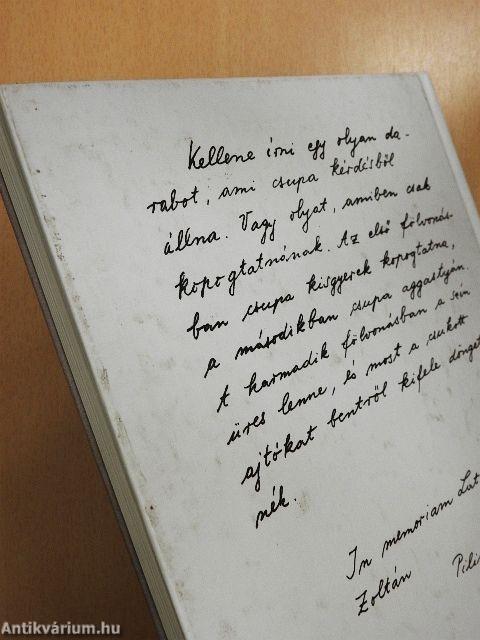 Kellene írni egy olyan da-
rabot, ami csupa kérdésből
állna. Vagy olyat, amiben csak
kopogtatnának. Az első fölvonás-
ban csupa kisgyerek kopogtatna,
a másodikban csupa aggastyán.
A harmadik fölvonásban a szín
üres lenne, és most a csukott
ajtókat bentről kifele dönget
nék.
In memoriam Lat
Zoltán Pili
Antikvárium.hu